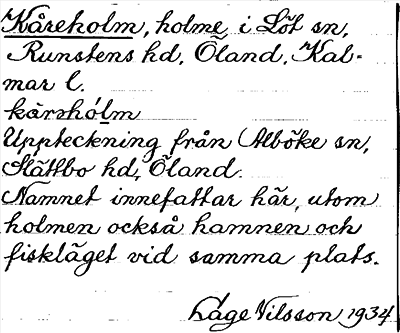 Kåreholm, holme i Löt sn,
Runstens hd, Öland, Kal-
mar l.
kårshólm
Uppteckning från Alböke sn,
Slättbo hd, Öland.
Namnet innefattar här, utom
holmen också hamnen och
fiskläget vid samma plats.
Låge Nilsson 1934